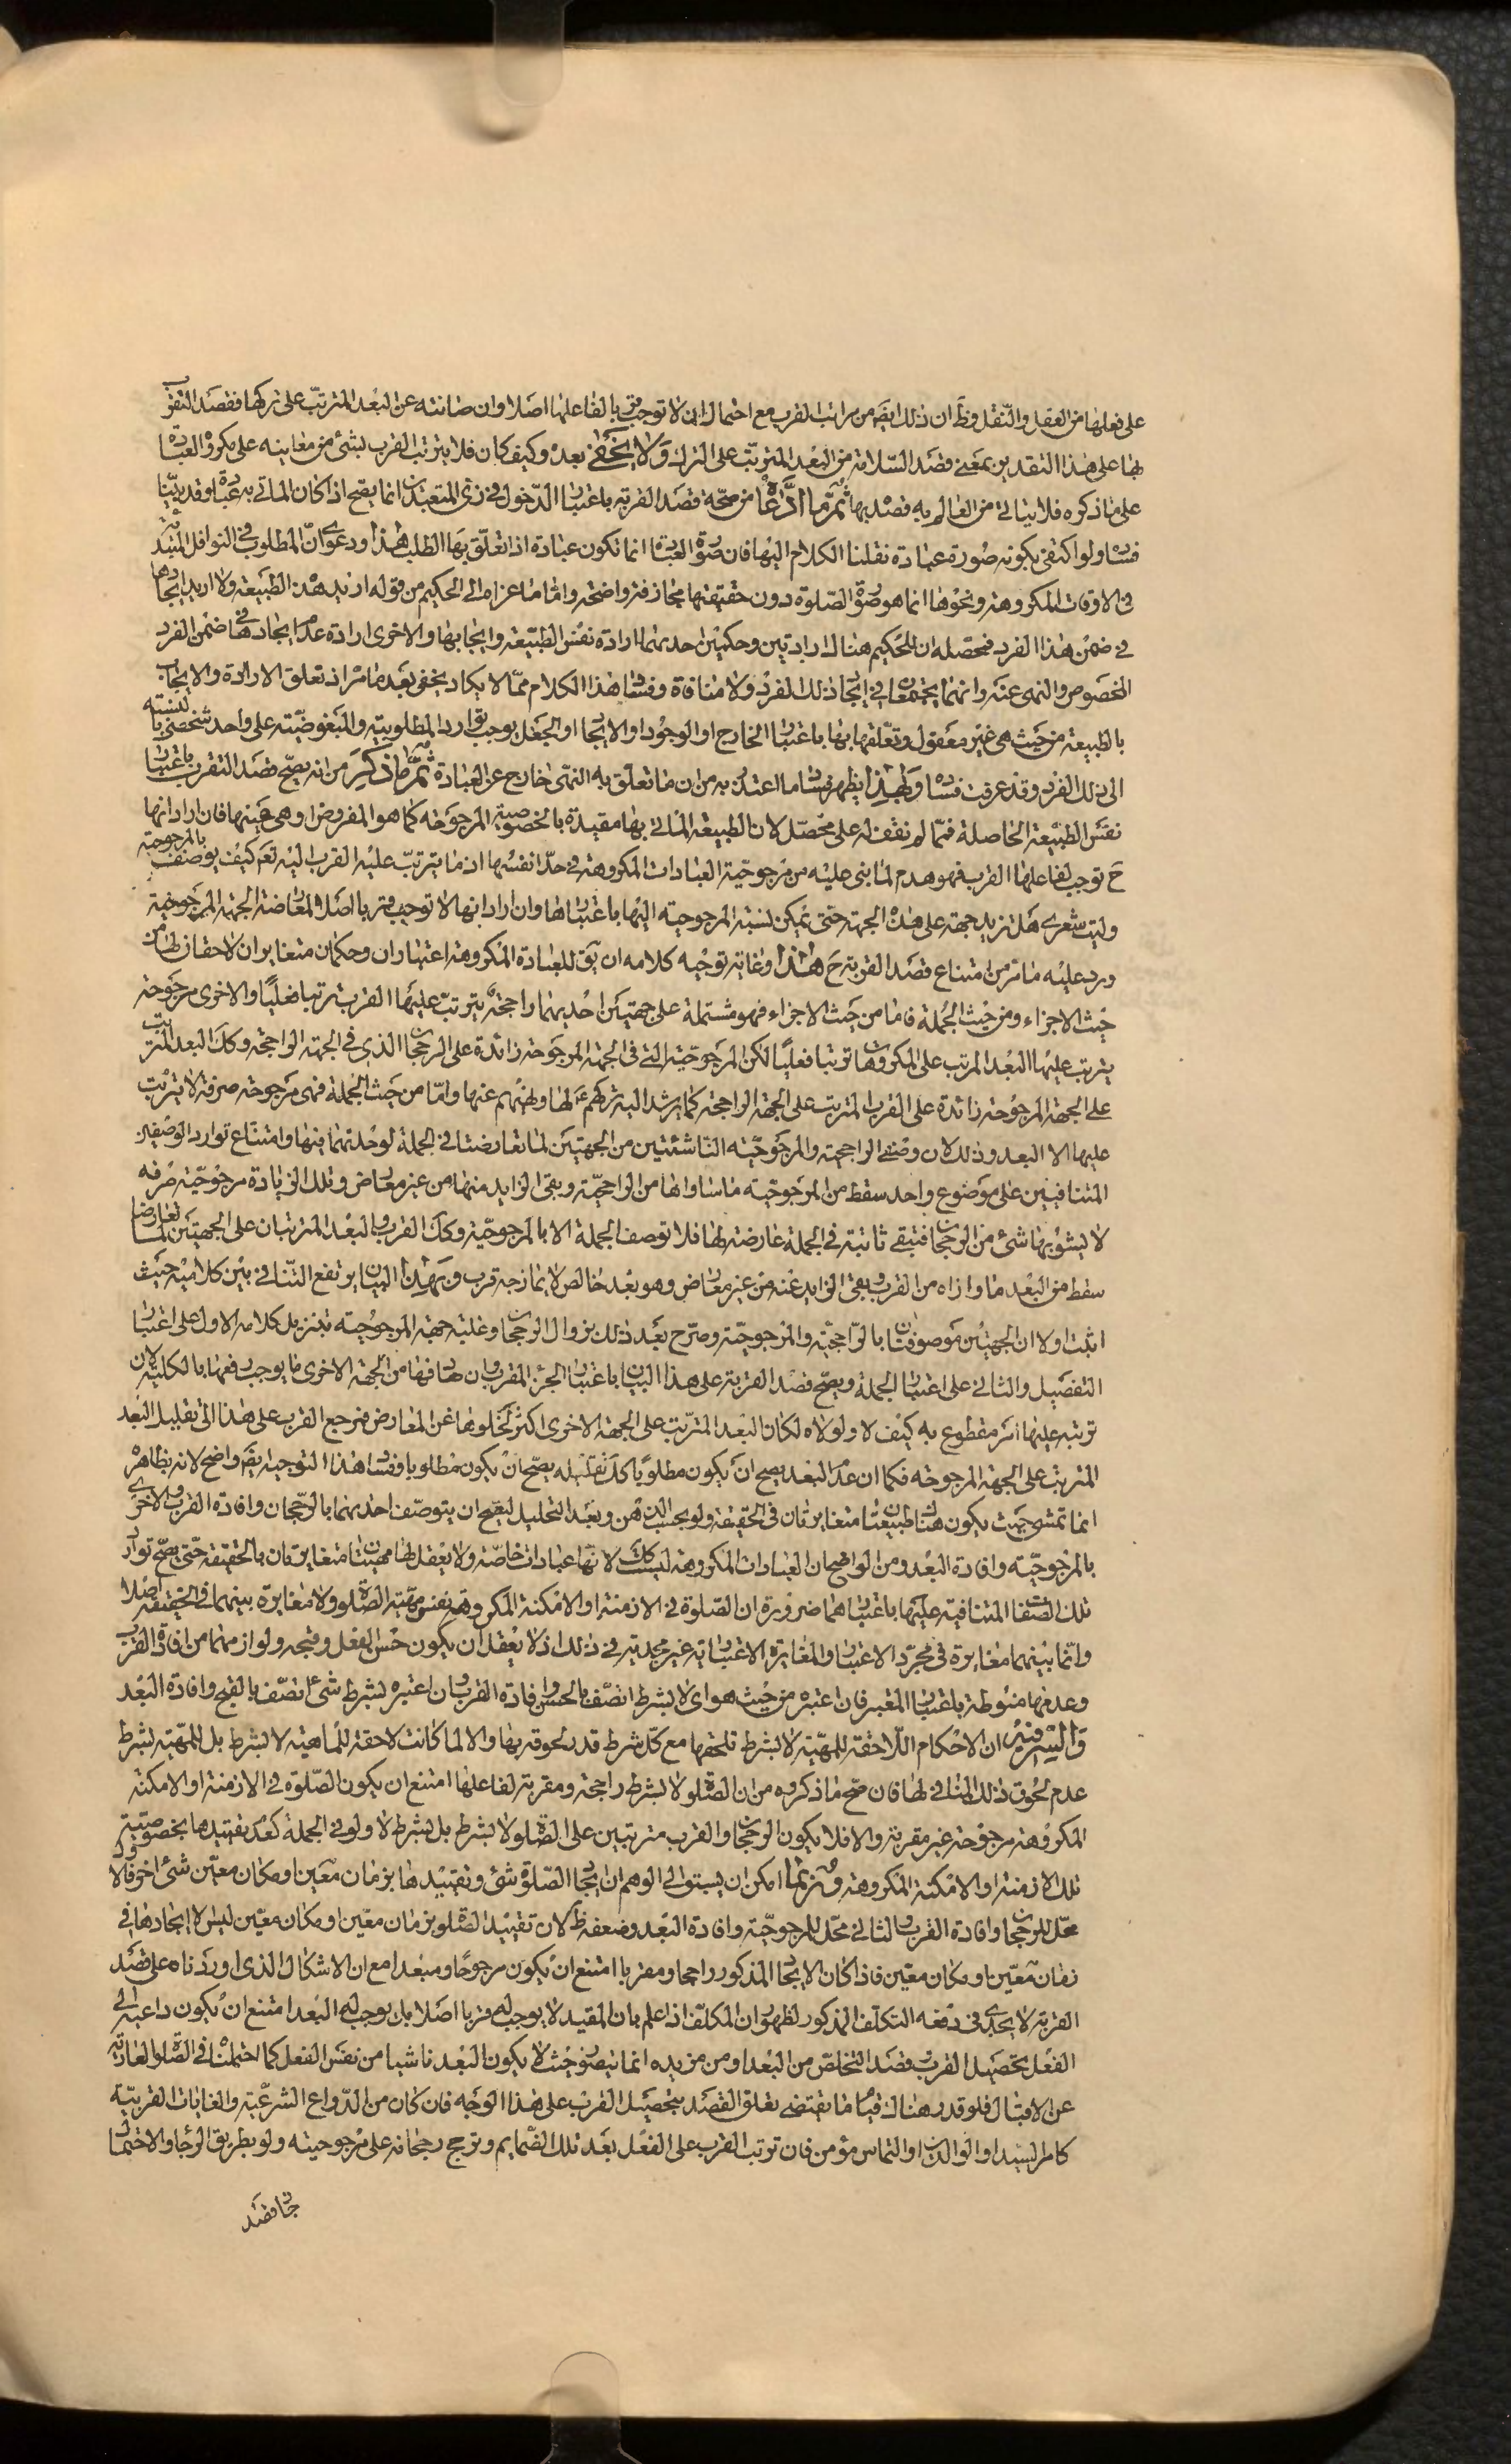 على فعلها من العقل والنقل وظ ان ذلك ايضا من مراتب القرب مع احتمال ان لا توجب قربا لفاعلها اصلا وان صانته عن البعد المترتب على تركها فقصد التقرب
بها على هذا التقدير بمعنى قصد السلامة من البعد المترتب على الترك ولا يخفى بعده وكيف كان فلا يترتب القرب بشئ من معانيه على مكروه العبادة
على ما ذكره فلا يتاتى من العالم به قصده بها ثم ما ادعاه من صحة قصد القربة باعتبار الدخول في زى المتعبدين انما يصح اذا كان الماتى به عبادة وقد بينا
فساده ولو اكتفى بكونه صورة عبادة نقلنا الكلام اليها فان صورة العبادة انما تكون عبادة اذا تعلق بها الطلب هذا ودعوى ان المطلوب في النوافل المبتدئة
في الاوقات المكروهة ونحوها انما هو صورة الصلوة دون حقيقتها مجازفة واضحة واما ما عزاه الى الحكيم من قوله اريد هذه الطبيعة ولا اريد ايجادها
في ضمن هذا الفرد فمحصله ان للحكيم هناك ارادتين وحكمين احديهما ارادة نفس الطبيعة وايجابها والاخرى ارادة عدم ايجادها في ضمن الفرد
المخصوص والنهى عنه وانهما يجتمعان في ايجاد ذلك الفرد ولا منافاة وفساد هذا الكلام مما لا يكاد يخفى بعد ما مر اذ تعلق الارادة والايجاب
بالطبيعة من حيث هى غير معقول وتعلقهما بها باعتبار الخارج او الوجود او الايجاد او الجعل يوجب توارد المطلوبية والمبغوضية على واحد شخصى بالنسبة
الى ذلك الفرد وقد عرفت فساده وبهذا يظهر فساد ما اعتذر به من ان ما تعلق به النهى خارج عن العبادة ثم ما ذكره من انه يصح قصد التقرب باعتبار
نفس الطبيعة الحاصلة فمما لم نقف له على محصل لان الطبيعة الماتى بها مقيدة بالخصوصية المرجوحة كما هو المفروض او هى عينها فان اراد انها
ح توجب لفاعلها القرب فهو هدم لما بنى عليه من مرجوحية العبادات المكروهة في حد انفسها اذ ما يترتب عليه القرب اليه تعالى كيف يوصف بالمرجوحية
وليت شعرى هل تزيد جهة على هذه الجهة حتى يمكن نسبة المرجوحية اليها باعتبارها وان اراد انها لا توجب قربا اصلا لمعارضة الجهة المرجوحة
ورد عليه ما مر من امتناع قصد القربة ح هذا وغاية توجيه كلامه ان يق للعبادة المكروهة اعتباران وحكمان متغايران لاحقان لها من
حيث الاجزاء ومن حيث الجملة فاما من حيث الاجزاء فهو مشتملة على جهتين احديهما راجحة يترتب عليها القرب ترتبا فعليا والاخرى مرجوحة
يترتب عليها البعد المرتب على المكروهات ترتبا فعليا لكن المرجوحية التي في الجهة المرجوحة زائدة على الرجحان الذي في الجهة الراجحة وكك البعد المترتب
على الجهة المرجوحة زائدة على القرب المترتب على الجهة الراجحة كما يرشد اليه تركهم ع لها ونهيهم عنها واما من حيث الجملة فهى مرجوحة صرفة لا يترتب
عليها الا البعد وذلك لان وصفى الراجحية والمرجوحية الناشئتين من الجهتين لما تعارضتا في الجملة لوحدتهما فيها وامتناع توارد الوصفين
المتنافيين على موضوع واحد سقط من المرجوحية ما ساواها من الراجحية وبقى الزايد منها من غير معارض وتلك الزيادة مرجوحية صرفة
لا يشوبها شئ من الرجحان فتبقى ثابتة في الجملة عارضة لها فلا توصف الجملة الا بالمرجوحية وكك القرب والبعد المترتبان على الجهتين لما تعارضا
سقط من البعد ما وازاه من القرب وبقى الزايد عنه من غير معارض وهو بعد خالص لا يمازجه قرب وبهذا البيان يرتفع التنافي بين كلاميه حيث
اثبت اولا ان الجهتين موصوفتان بالراجحية والمرجوحية وصرح بعد ذلك بزوال الرجحان وغلبة جهة المرجوحية بتنزيل كلامه الاول على اعتبار
التفصيل والثانى على اعتبار الجملة ويصح قصد القربة على هذا البيان باعتبار الجزء المقرب وان صادفها من الجهة الاخرى ما يوجب دفعها بالكلية لان
ترتبه عليها امر مقطوع به كيف لا ولولاه لكان البعد المترتب على الجهة الاخرى اكثر لخلوها عن المعارض فمرجع القرب على هذا الى تقليل البعد
المترتب على الجهة المرجوحة فكما ان عدم البعد يصح ان يكون مطلوبا كذلك تقليله يصح ان يكون مطلوبا وفساد هذا التوجيه ايضا واضح لانه بظاهره
انما تمشى حيث يكون هناك طبيعتان متغايرتان في الحقيقة ولو بحسب الذهن وبعد التحليل ليصح ان يتوصف احديهما بالرجحان وافادة القرب والاخرى
بالمرجوحية وافادة البعد ومن الواضح ان العبادات المكروهة ليست كك لانها عبادات خاصة ولا يعقل لها مهيتان متغايرتان بالحقيقة حتى يصح توارد
تلك الصفات المتنافية عليها باعتبارهما ضرورة ان الصلوة في الازمنة او الامكنة المكروهة نفس مهية الصلوة ولا مغايرة بينهما في الحقيقة اصلا
وانما بينهما مغايرة في مجرد الاعتبار والمغايرة الاعتبارية غير مجدية في ذلك اذ لا يعقل ان يكون حسن الفعل وقبحه ولوازمهما من افادة القرب
وعدمها منوطة باعتبار المعتبر فان اعتبره من حيث هو اى لا بشرط اتصف بالحسن وافادة القرب وان اعتبره بشرط شئ اتصف بالقبح وافادة البعد
والسر فيه ان الاحكام اللاحقة للمهية لا بشرط تلحقها مع كل شرط قدر لحوقه بها والا لما كانت لاحقة للماهية لا بشرط بل للمهية بشرط
عدم لحوق ذلك المنافى لها فان صح ما ذكروه من ان الصلوة لا بشرط راجحة ومقربة لفاعلها امتنع ان يكون الصلوة في الازمنة او الامكنة
المكروهة مرجوحة غير مقربة والا فلا يكون الرجحان والقرب مترتبين على الصلوة لا بشرط بل بشرط لا ولو في الجملة كعدم تقييدها بخصوصية
تلك الازمنة او الامكنة المكروهة وربما امكن ان يسبق الى الوهم ان ايجاد الصلوة شئ وتقييدها بزمان معين او مكان معين شئ اخر فالاول
محل للرجحان وافادة القرب والثانى محل للمرجوحية وافادة البعد وضعفه ظ لان تقييد الصلوة بزمان معين او مكان معين ليس الا ايجادها في
زمان معين او مكان معين فاذا كان الايجاد المذكور راجحا ومقربا امتنع ان يكون مرجوحا ومبعدا مع ان الاشكال الذي اوردناه على قصد
القربة لا يجدى في دفعه التكلف المذكور لظهور ان المكلف اذا علم بان المقيد لا يوجب له قربا اصلا بل يوجب له البعد امتنع ان يكون داعيه الى
الفعل تحصيل القرب وقصد التخلص من البعد او من مزيده انما يتصور حيث لا يكون البعد ناشيا من نفس الفعل كما احتملنا في الصلوة العارية
عن الاقبال فلو قدر هناك قيام ما يقتضى تعلق القصد بتحصيل القرب على هذا الوجه فان كان من الدواعى الشرعية والغايات القربية
كامر السيد او الوالدين او التماس مؤمن فان ترتب القرب على الفعل بعد تلك الضمايم وترجح رجحانه على مرجوحيته ولو بطريق الرجاء والاحتمال
جاز قصد